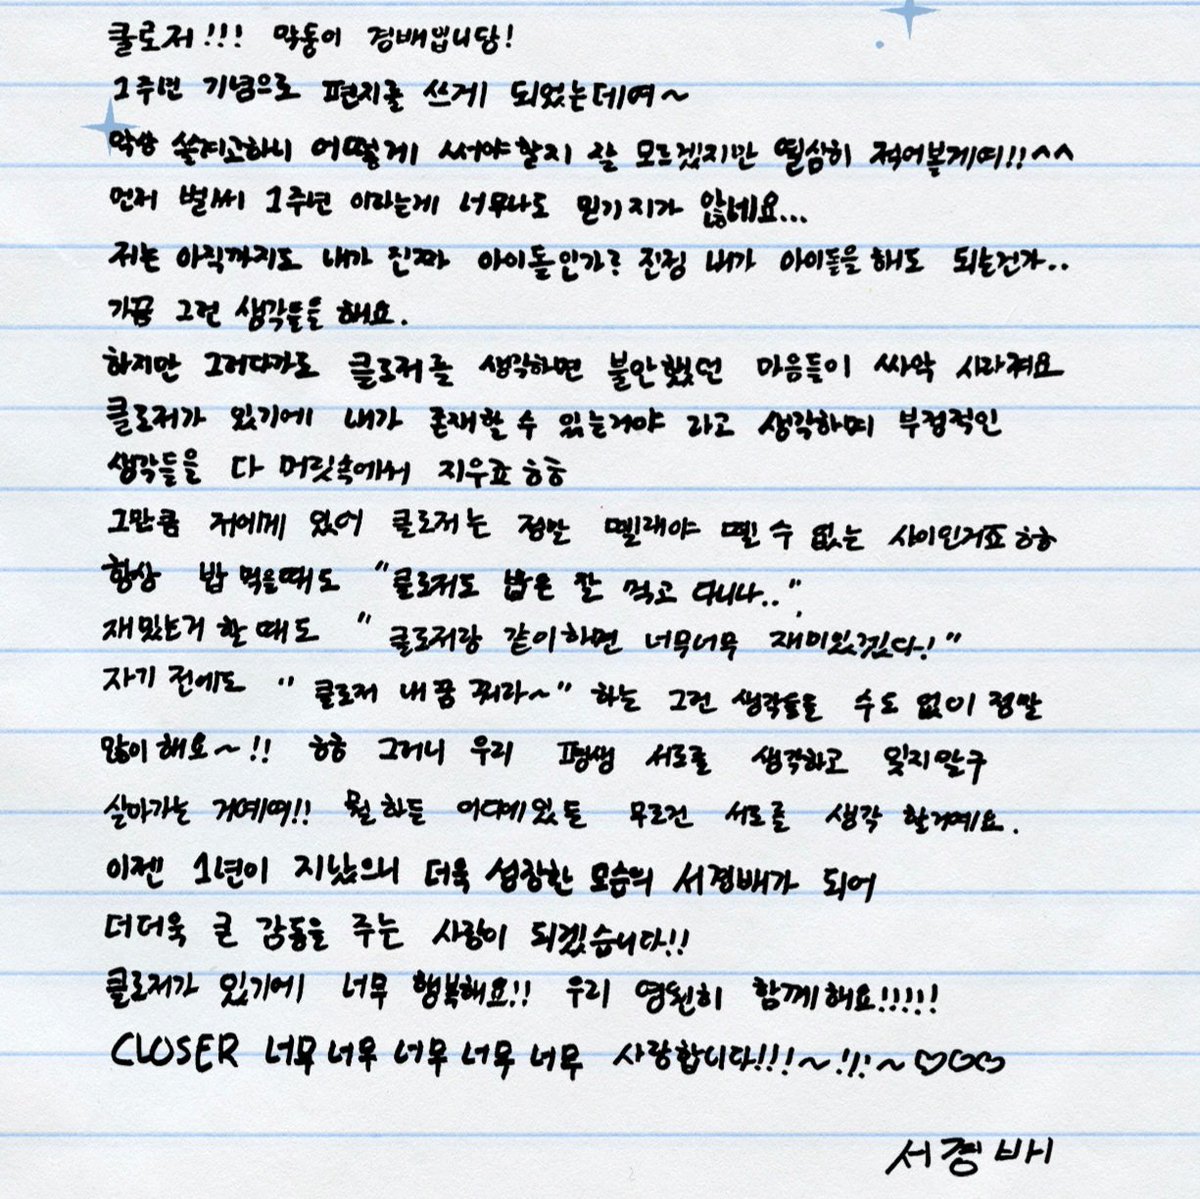 클로저!!! 막둥이 경배입니당!
1주년 기념으로 편지를 쓰게 되었는데여~
막상 쓸려고하니 어떻게 써야할지 잘 모르겠지만 열심히 적어볼게여!!^^
먼저 벌써 1주년 이라는게 너무나도 믿기지가 않네요...
저는 아직까지도 내가 진짜 아이돌인가? 진정 내가 아이돌을 해도 되는건가..
가끔 그런 생각들을 해요.
하지만 그러다가도 클로저를 생각하면 불안했던 마음들이 싸악 사라져요
클로저가 있기에 내가 존재할 수 있는거야 라고 생각하며 부정적인
생각들을 다 머릿속에서 지우죠ㅎㅎ
그만큼 저에게 있어 클로저는 정말 뗄래야 뗄 수 없는 사이인거죠ㅎㅎ
항상 밥 먹을때도 "클로저도 밥은 잘 먹고 다니나.."
재밌는거 할때도 "클로저랑 같이하면 너무너무 재미있겠다!"
자기 전에도 "클로저 내 꿈 꿔라~" 하는 그런 생각들을 수도 없이 정말
많이해요~!! ㅎㅎ 그러니 우리 평생 서로를 생각하고 잊지말구
살아가는 거예여!! 뭘하든 어디에있든 무조건 서로를 생각 할거예요.
이젠 1년이 지났으니 더욱 성장한 모습의 서경배가 되어
더더욱 큰 감동을 주는 사람이 되겠습니다!!
클로저가 있기에 너무 행복해요!! 우리 영원히 함께해요!!!!!
CLOSER 너무 너무 너무 너무 너무 사랑합니다!!!~!!!~♡♡♡
서경배